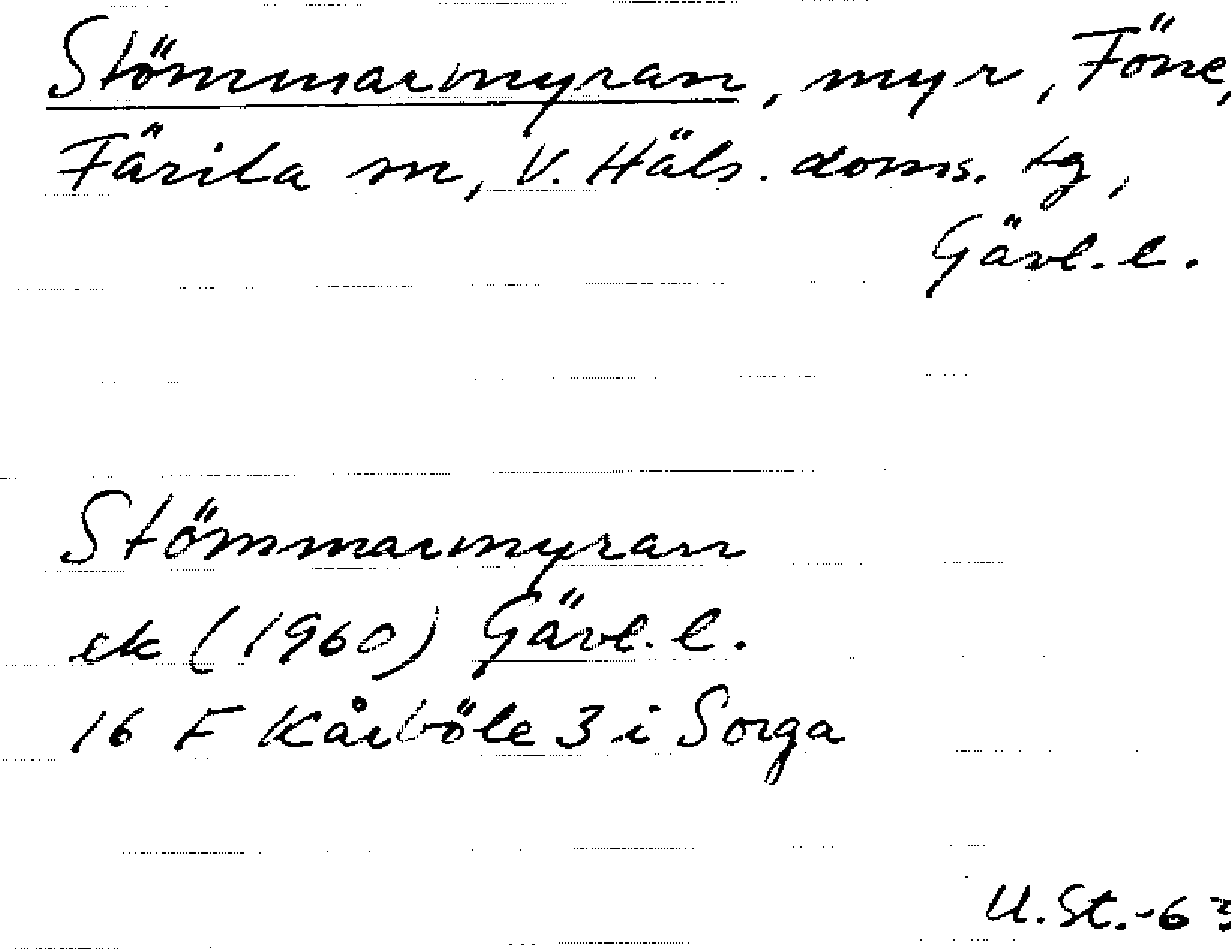 Stömmarmyran, myr, Föne,
Färila sn, V. Häls. doms. tg,
Gävl. l.
Stömmarmyran
ek (1960) Gävl. l.
16 F Kårböle 3 i Sorga
U.St.-63